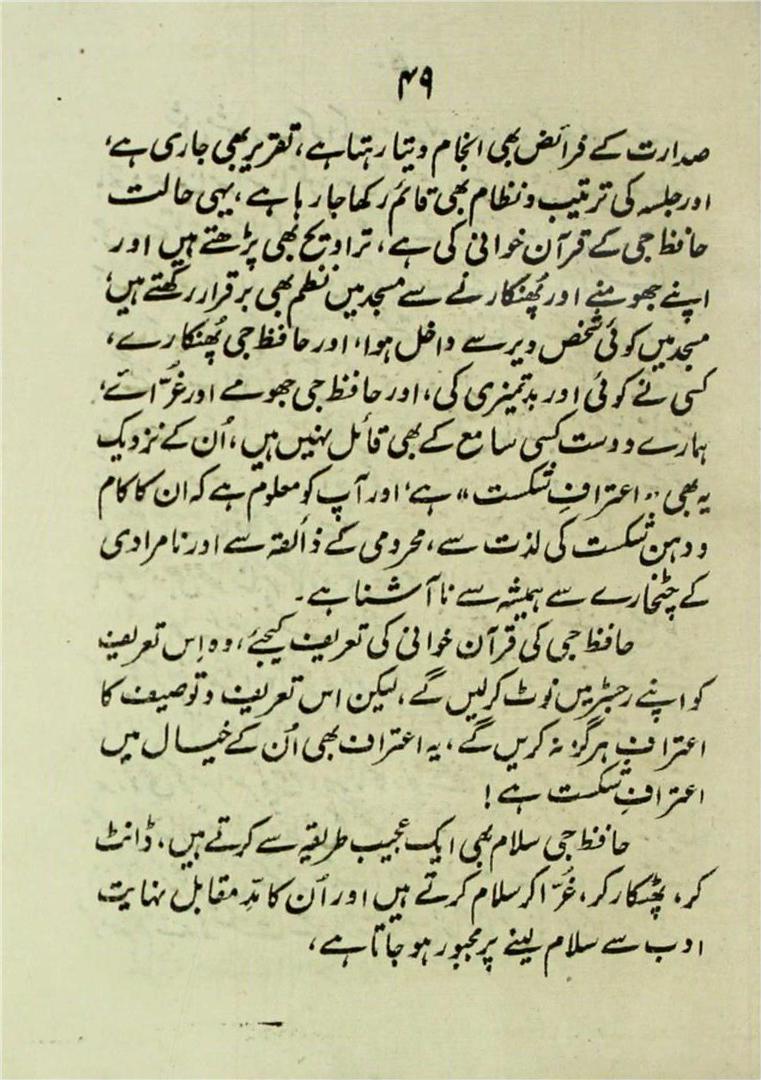 ۴۹
صدارت کے فرائض بھی انجام دیتا رہتا ہے، تقریر بھی جاری ہے،
اور جلسہ کی ترتیب و نظام بھی قائم رکھا جا رہا ہے، یہی حالت
حافظ جی کے قرآن خوانی کی ہے، تراویح بھی پڑھتے ہیں اور
اپنے جھومنے اور پُھنکارنے سے مسجد میں نظم بھی برقرار رکھتے ہیں،
مسجد میں کوئی شخص دیر سے داخل ہوا، اور حافظ جی پُھنکارے،
کسی نے کوئی اور بدتمیزی کی، اور حافظ جی جھومے اور غُرّائے،
ہمارے دوست کسی سامع کے بھی قائل نہیں ہیں، اُن کے نزدیک
یہ بھی "اعترافِ شکست" ہے، اور آپ کو معلوم ہے کہ ان کا کام
و دہن شکست کی لذت سے، محرومی کے ذائقہ سے اور نامرادی
کے چٹخارے سے ہمیشہ سے ناآشنا ہے۔
حافظ جی کی قرآن خوانی کی تعریف کیجئے، وہ اِس تعریف
کو اپنے رجسٹر میں نوٹ کرلیں گے، لیکن اس تعریف و توصیف کا
اعتراف ہرگز نہ کریں گے، یہ اعتراف بھی اُن کے خیال میں
اعترافِ شکست ہے!
حافظ جی سلام بھی ایک عجیب طریقہ سے کرتے ہیں، ڈانٹ
کر، پھٹکار کر، غُرّا کر سلام کرتے ہیں اور اُن کا مدِّ مقابل نہایت
ادب سے سلام لینے پر مجبور ہو جاتا ہے،